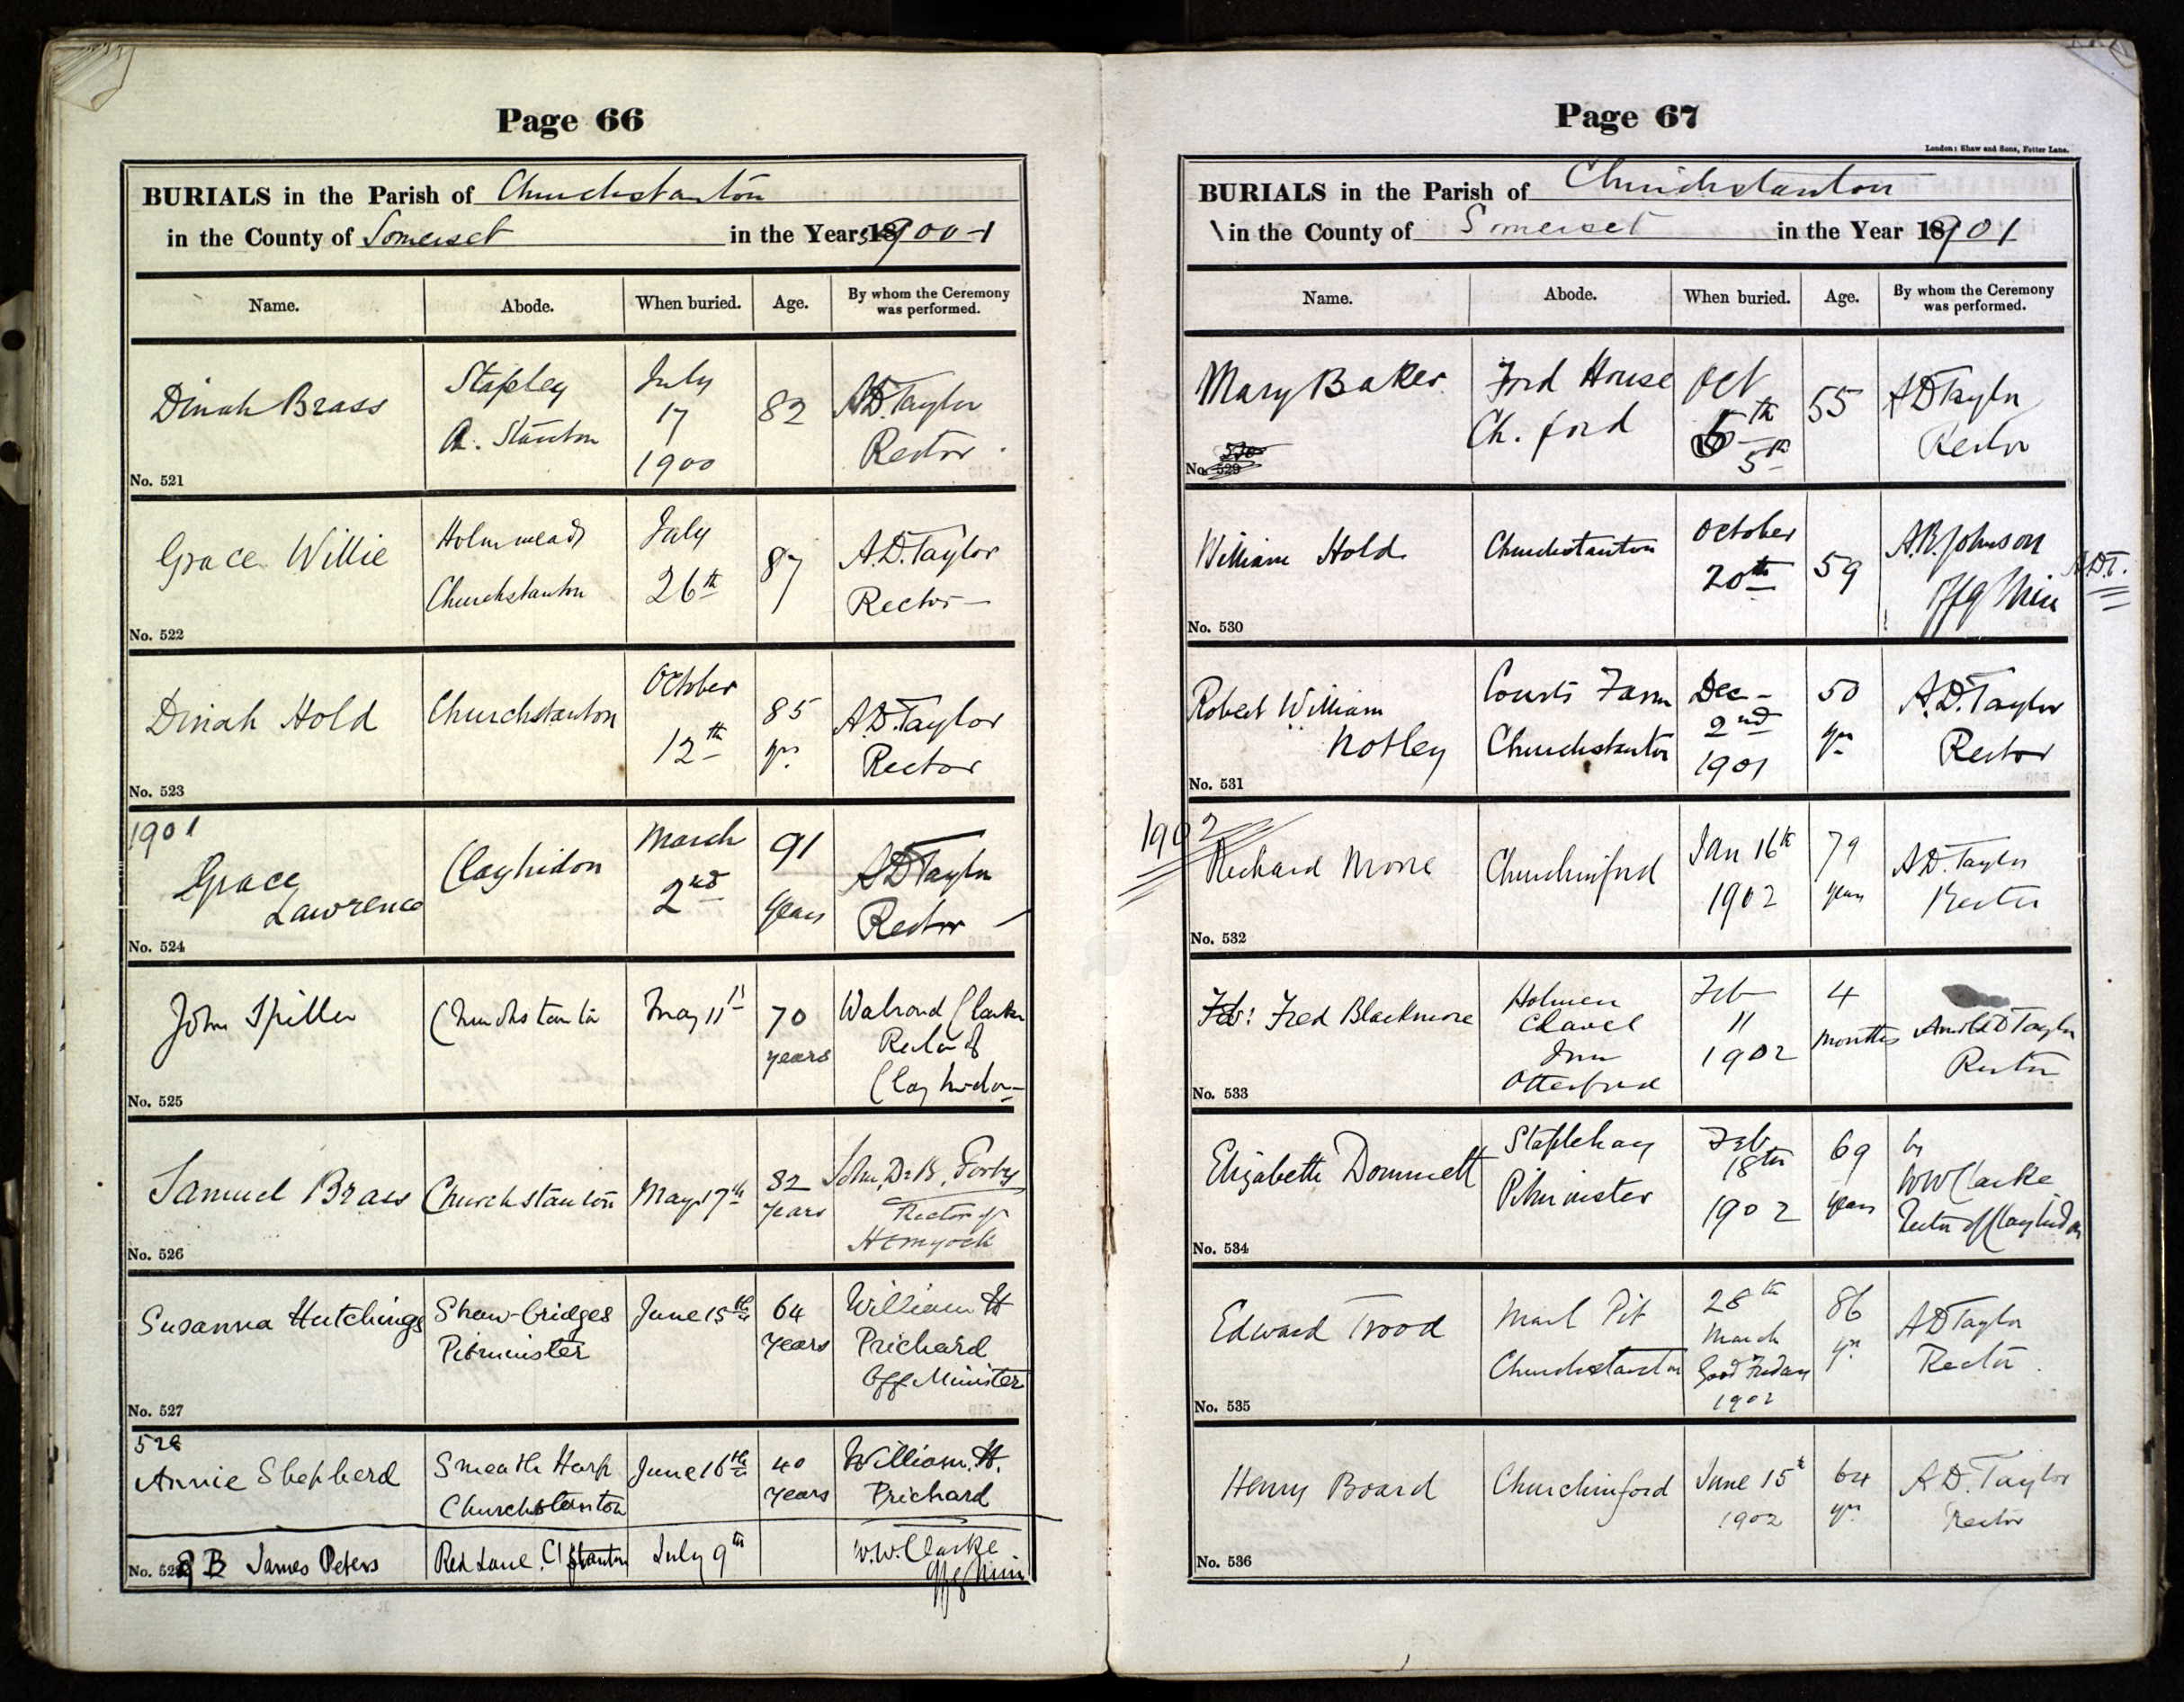 Page 66
BURIALS in the Parish of Churchstanton
in the County of Somerset in the Years 1900-1
Name. Abode. When buried. Age. By whom the Ceremony was performed.
Dinah Brass
Stapley
Ch. Stanton
July
17
1900
82
A.D. Taylor
Rector
No. 521
Grace Willie
Holmmeads
Churchstanton
July
26th
87
A.D. Taylor
Rector
No. 522
Dinah Hold
Churchstanton
October
12th
85
yrs.
A.D. Taylor
Rector
No. 523
1901
Grace
Lawrence
Clayhidon
March
2nd
91
years
A D Taylor
Rector
No. 524
John Spiller
Churchstanton
May 11th
70
years
Walrond Clarke
Rector of
Clayhidon
No. 525
Samuel Brass
Churchstanton
May 17th
82
years
John, De B. Forbes
Rector of
Hemyock
No. 526
Susanna Hutchings
Shaw-bridges
Pitminister
June 15th
64
years
William H
Prichard
Off Minister
No. 527
528
Annie Shepherd
Smeath Harp
Churchstanton
June 16th
40
years
William. H.
Prichard
No. 528 B James Peters
Red Lane. Ch Stanton
July 9th
W.W. Clarke
Offg Min
Page 67
London: Shaw and Sons, Fetter Lane.
BURIALS in the Parish of Churchstanton
in the County of Somerset in the Year 1901
Name. Abode. When buried. Age. By whom the Ceremony was performed.
Mary Baker
Ford House
Ch. ford
Oct
5th
5th
55
A D Taylor
Rector
No. 529
William Hold
Churchstanton
October
20th
59
A.B. Johnson
Offg Min
A.D.T.
No. 530
Robert William
Notley
Courts Farm
Churchstanton
Dec -
2nd
1901
50
yrs
A.D. Taylor
Rector
No. 531
1902
Richard More
Churchinford
Jan 16th
1902
79
years
A.D. Taylor
Rector
No. 532
Feb: Fred Blackmore
Holmen
Clavel
Inn
Otterford
Feb
11
1902
4
months
Arnold D Taylor
Rector
No. 533
Elizabeth Dommett
Staplehay
Pitminister
Feb
18th
1902
69
years
by
W W Clarke
Rector of Clayhidon
No. 534
Edward Trood
Marl Pit
Churchstanton
28th
March
Good Friday
1902
86
yrs.
A D Taylor
Rector.
No. 535
Henry Board
Churchinford
June 15th
1902
64
yrs.
A.D. Taylor
Rector
No. 536